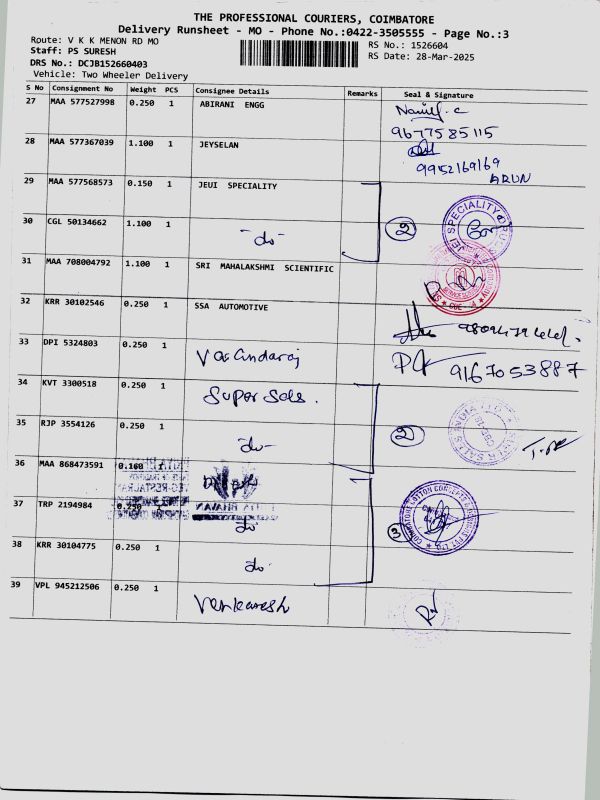 THE PROFESSIONAL COURIERS, COIMBATORE
Delivery Runsheet - MO - Phone No.:0422-3505555 - Page No.:3
Route: V K K MENON RD MO
Staff: PS SURESH
DRS No.: DCJB152660403
Vehicle: Two Wheeler Delivery
RS No.: 1526604
RS Date: 28-Mar-2025
S No Consignment No Weight PCS Consignee Details Remarks Seal & Signature
27 MAA 577527998 0.250 1 ABIRANI ENGG
9677585115
28 MAA 577367039 1.100 1 JEYSELAN
9952169169
ARUN
29 MAA 577568573 0.150 1 JEUI SPECIALITY
JEI SPECIALITY
30 CGL 50134662 1.100 1 -do- 2
31 MAA 708004792 1.100 1 SRI MAHALAKSHMI SCIENTIFIC
32 KRR 30102546 0.250 1 SSA AUTOMOTIVE
33 DPI 5324803 0.250 1 Vasandaraj
9167053887
34 KVT 3300518 0.250 1 Super Sales.
35 RJP 3554126 0.250 1 -do- 2
36 MAA 868473591 0.160 1
37 TRP 2194984 0.250 1 -do- 3
38 KRR 30104775 0.250 1 -do-
39 VPL 945212506 0.250 1 Venkatesh